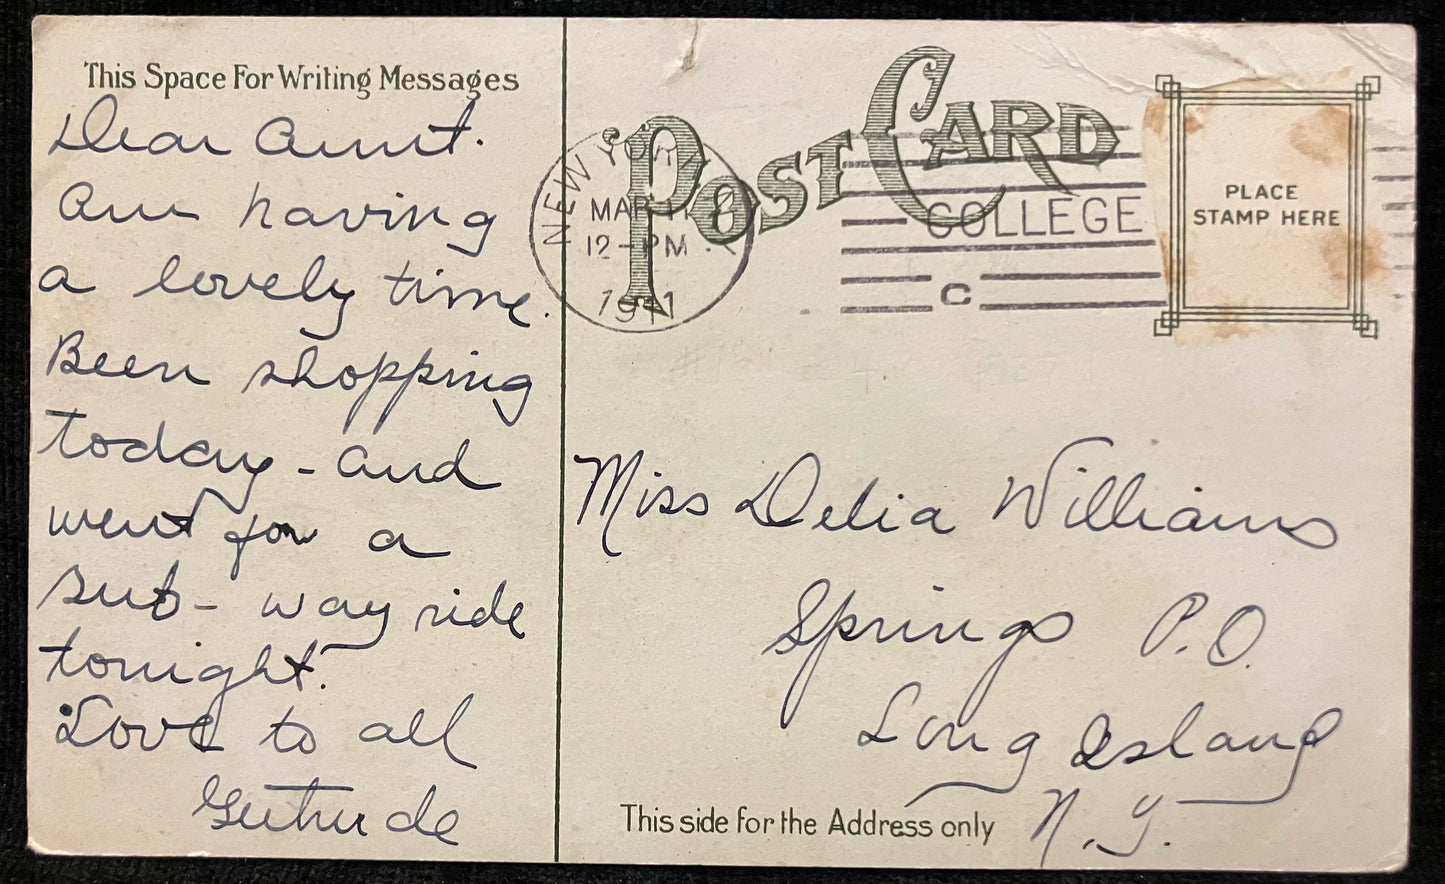 This Space For Writing Messages
Dear Aunt.
Am having
a lovely time.
Been shopping
today - and
went for a
sub - way ride
tonight.
Love to all
Gertrude
POST CARD
NEW YORK
MAR
12 - PM
1911
COLLEGE
C
PLACE
STAMP HERE
Miss Delia Williams
Springs P.O.
Long Island
N.Y.
This side for the Address only